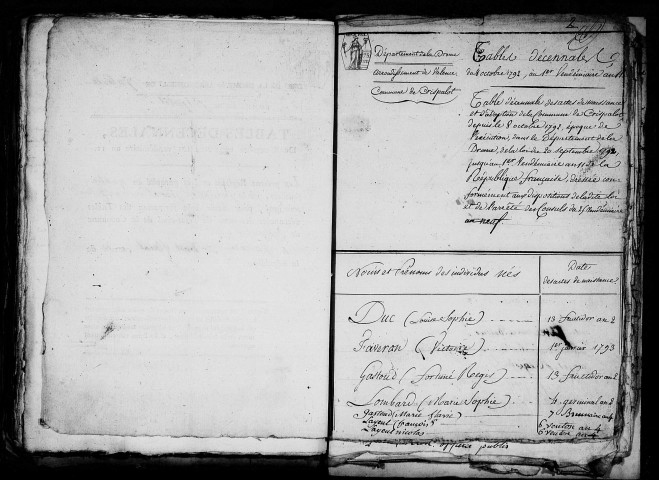 Département de la Drome
arrondissement de Valence
Commune de Crespalot
Tables décennales
du 8 octobre 1792 au 1er Vendémiaire an 11
Table décennale des actes de naissance
et d'adoption de la Commune de Crespalot
depuis le 8 octobre 1792, époque de
l'exécution, dans le Département de la
Drome, de la loi du 20 septembre 1792
jusqu'au 1er Vendémiaire an 11 de la
République française, dressée con-
formément aux dispositions de ladite loi
et de l'arrêté des Consuls du 25 Vendémiaire
an neuf
Noms et Prénoms des individus nés
Date
des actes de naissance
Duc (Louise Sophie) 13 fructidor an 2
Faveron (Victoire) 1er janvier 1793
Gastoud (Fortuné Regis) 13 fructidor an 2
Lombard (Marie Sophie) 4 germinal an 2
Gastoud (Marie flavie) 7 Brumaire an 4
Layeul (françois) 6 ventose an 4
Layeul nicolas 6 ventose an 4
officier public